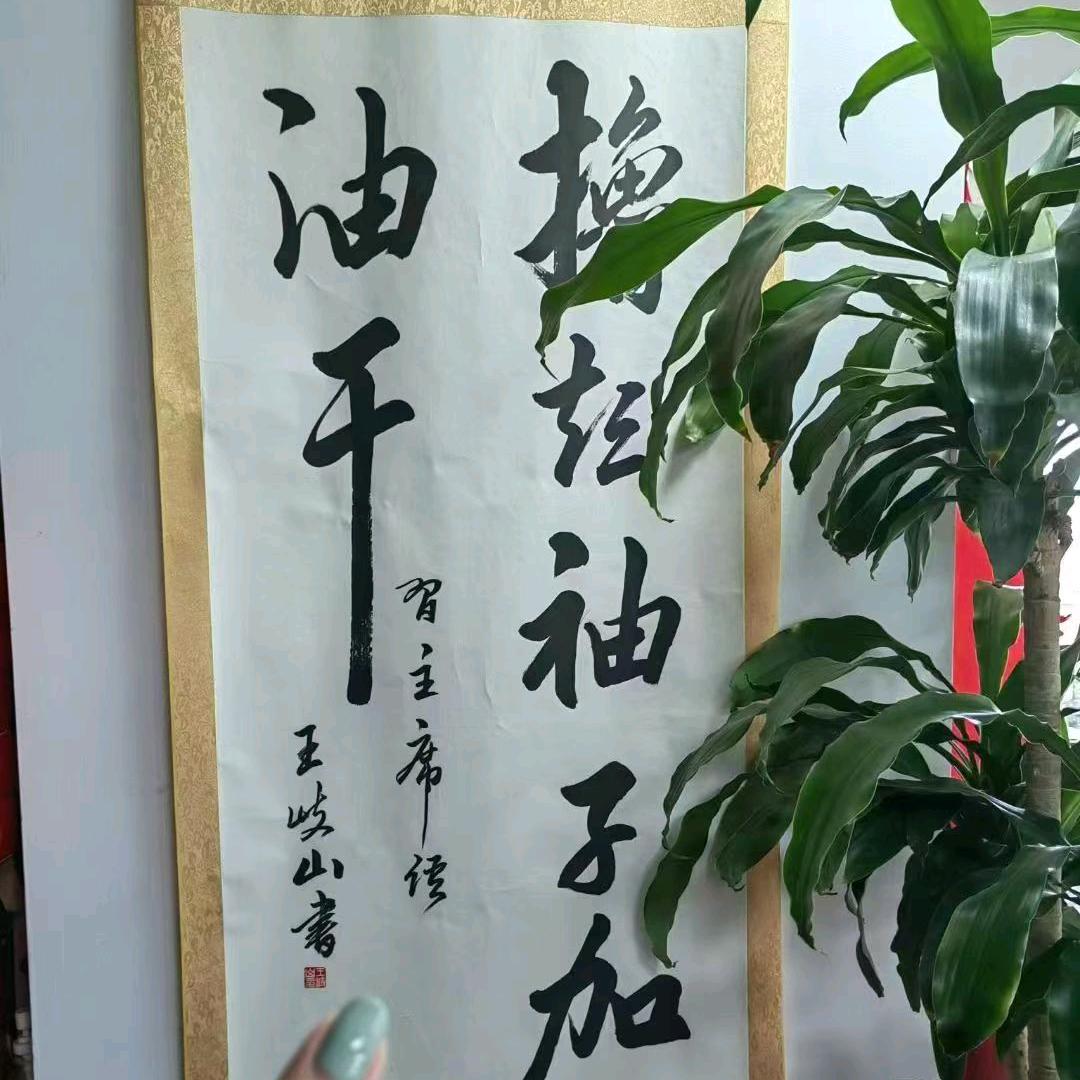 撸起袖子加
油干
習主席语
王岐山書